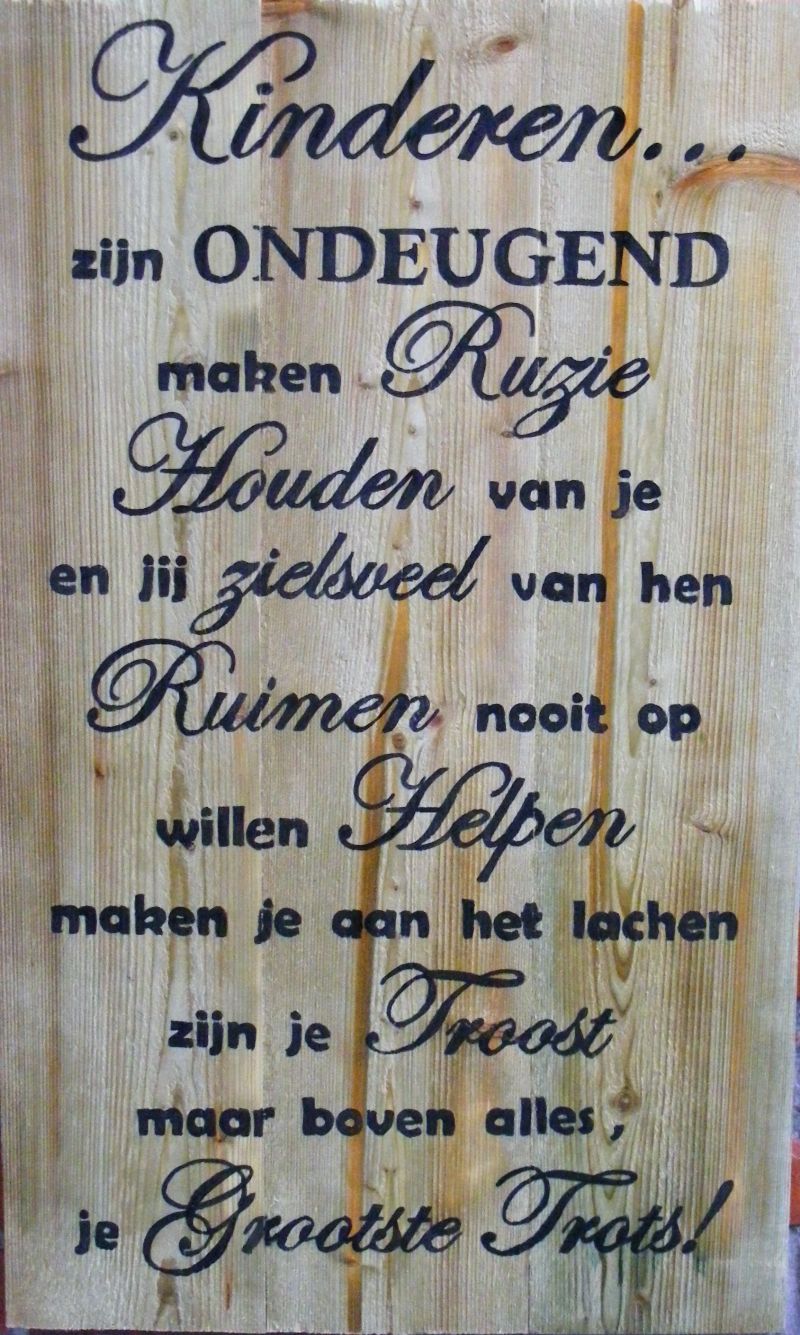 Kinderen...
zijn ONDEUGEND
maken Ruzie
Houden van je
en jij zielsveel van hen
Ruimen nooit op
willen Helpen
maken je aan het lachen
zijn je Troost
maar boven alles,
je Grootste Trots!